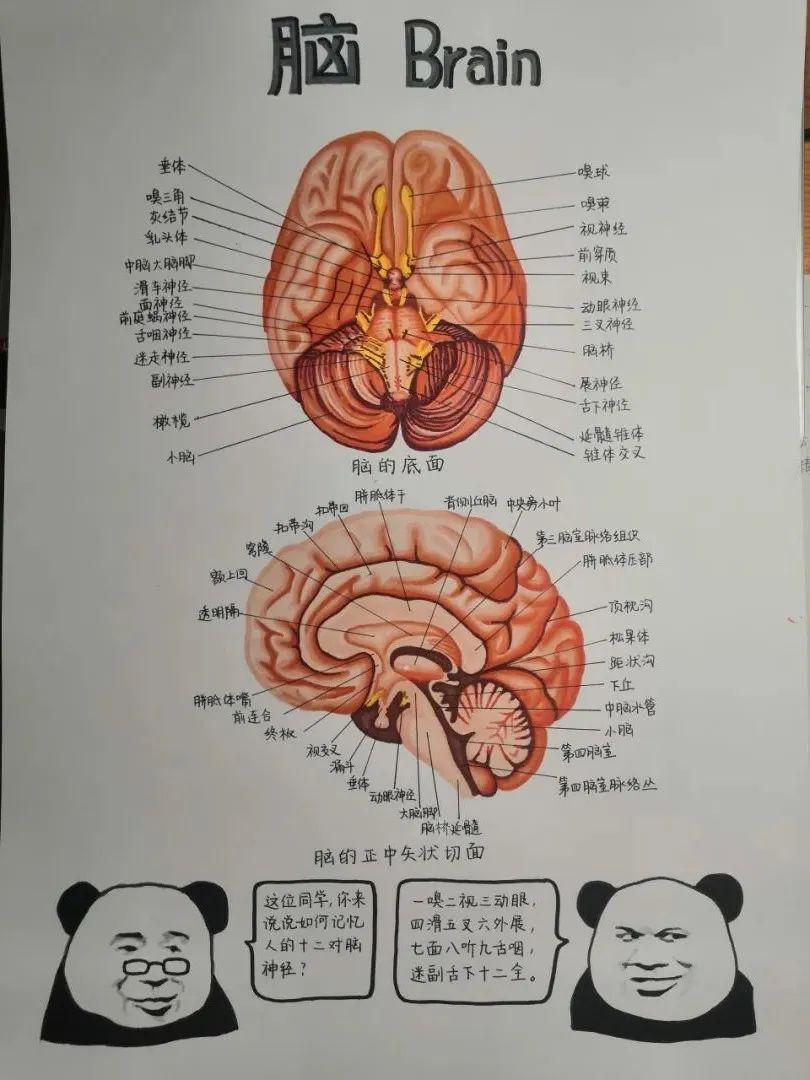 脑 Brain
垂体
嗅三角
灰结节
乳头体
中脑大脑脚
滑车神经
面神经
前庭蜗神经
舌咽神经
迷走神经
副神经
橄榄
小脑
嗅球
嗅束
视神经
前穿质
视束
动眼神经
三叉神经
脑桥
展神经
舌下神经
延髓锥体
锥体交叉
脑的底面
胼胝体干
扣带回
扣带沟
穹隆
额上回
透明隔
胼胝体嘴
前连合
终板
视交叉
漏斗
垂体
动眼神经
大脑脚
脑桥延髓
背侧丘脑
中央旁小叶
第三脑室脉络组织
胼胝体压部
顶枕沟
松果体
距状沟
下丘
中脑水管
小脑
第四脑室
第四脑室脉络丛
脑的正中矢状切面
这位同学,你来
说说如何记忆
人的十二对脑
神经?
一嗅二视三动眼,
四滑五叉六外展,
七面八听九舌咽,
迷副舌下十二全。